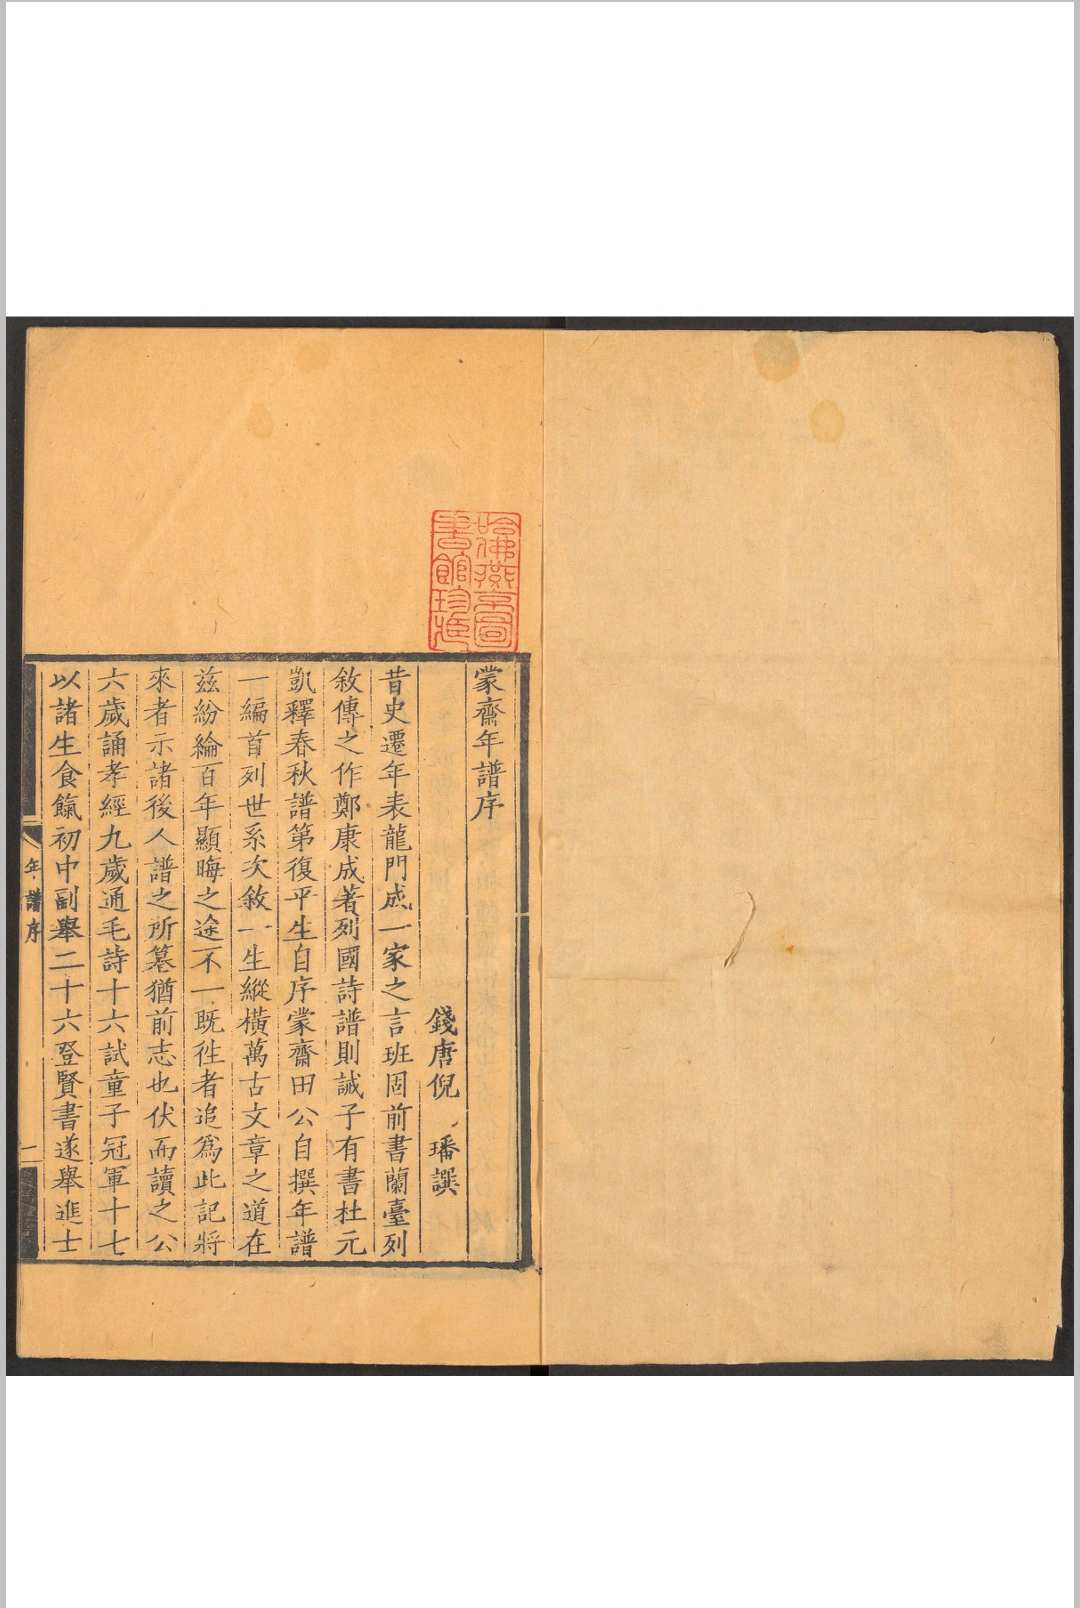 蒙齋年譜序
錢唐倪璠譔
昔史遷年表龍門成一家之言班固前書蘭臺列
敘傳之作鄭康成著列國詩譜則誠子有書杜元
凱釋春秋譜第復平生自序蒙齋田公自撰年譜
一編首列世系次敘一生縱橫萬古文章之道在
兹紛綸百年顯晦之途不一既徃者追爲此記將
來者示諸後人譜之所蓋猶前志也伏而讀之公
六歲誦孝經九歲通毛詩十六試童子冠軍十七
以諸生食餼初中副舉二十六登賢書遂舉進士
年譜序
一
哈佛燕京圖
書館珍藏